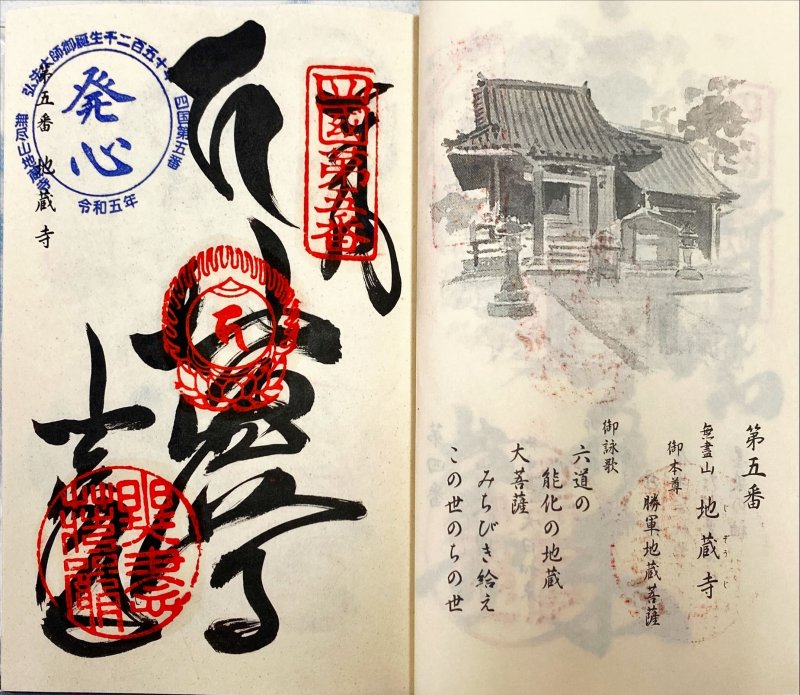 第五番
無盡山 地蔵寺
じぞうじ
御本尊
勝軍地蔵菩薩
御詠歌
六道の
能化の地蔵
大菩薩
みちびき給え
この世のちの世
四国第五番
弘法大師御誕生千二百五十年
四国第五番
発心
令和五年
無尽山地蔵寺
第五番 地蔵寺